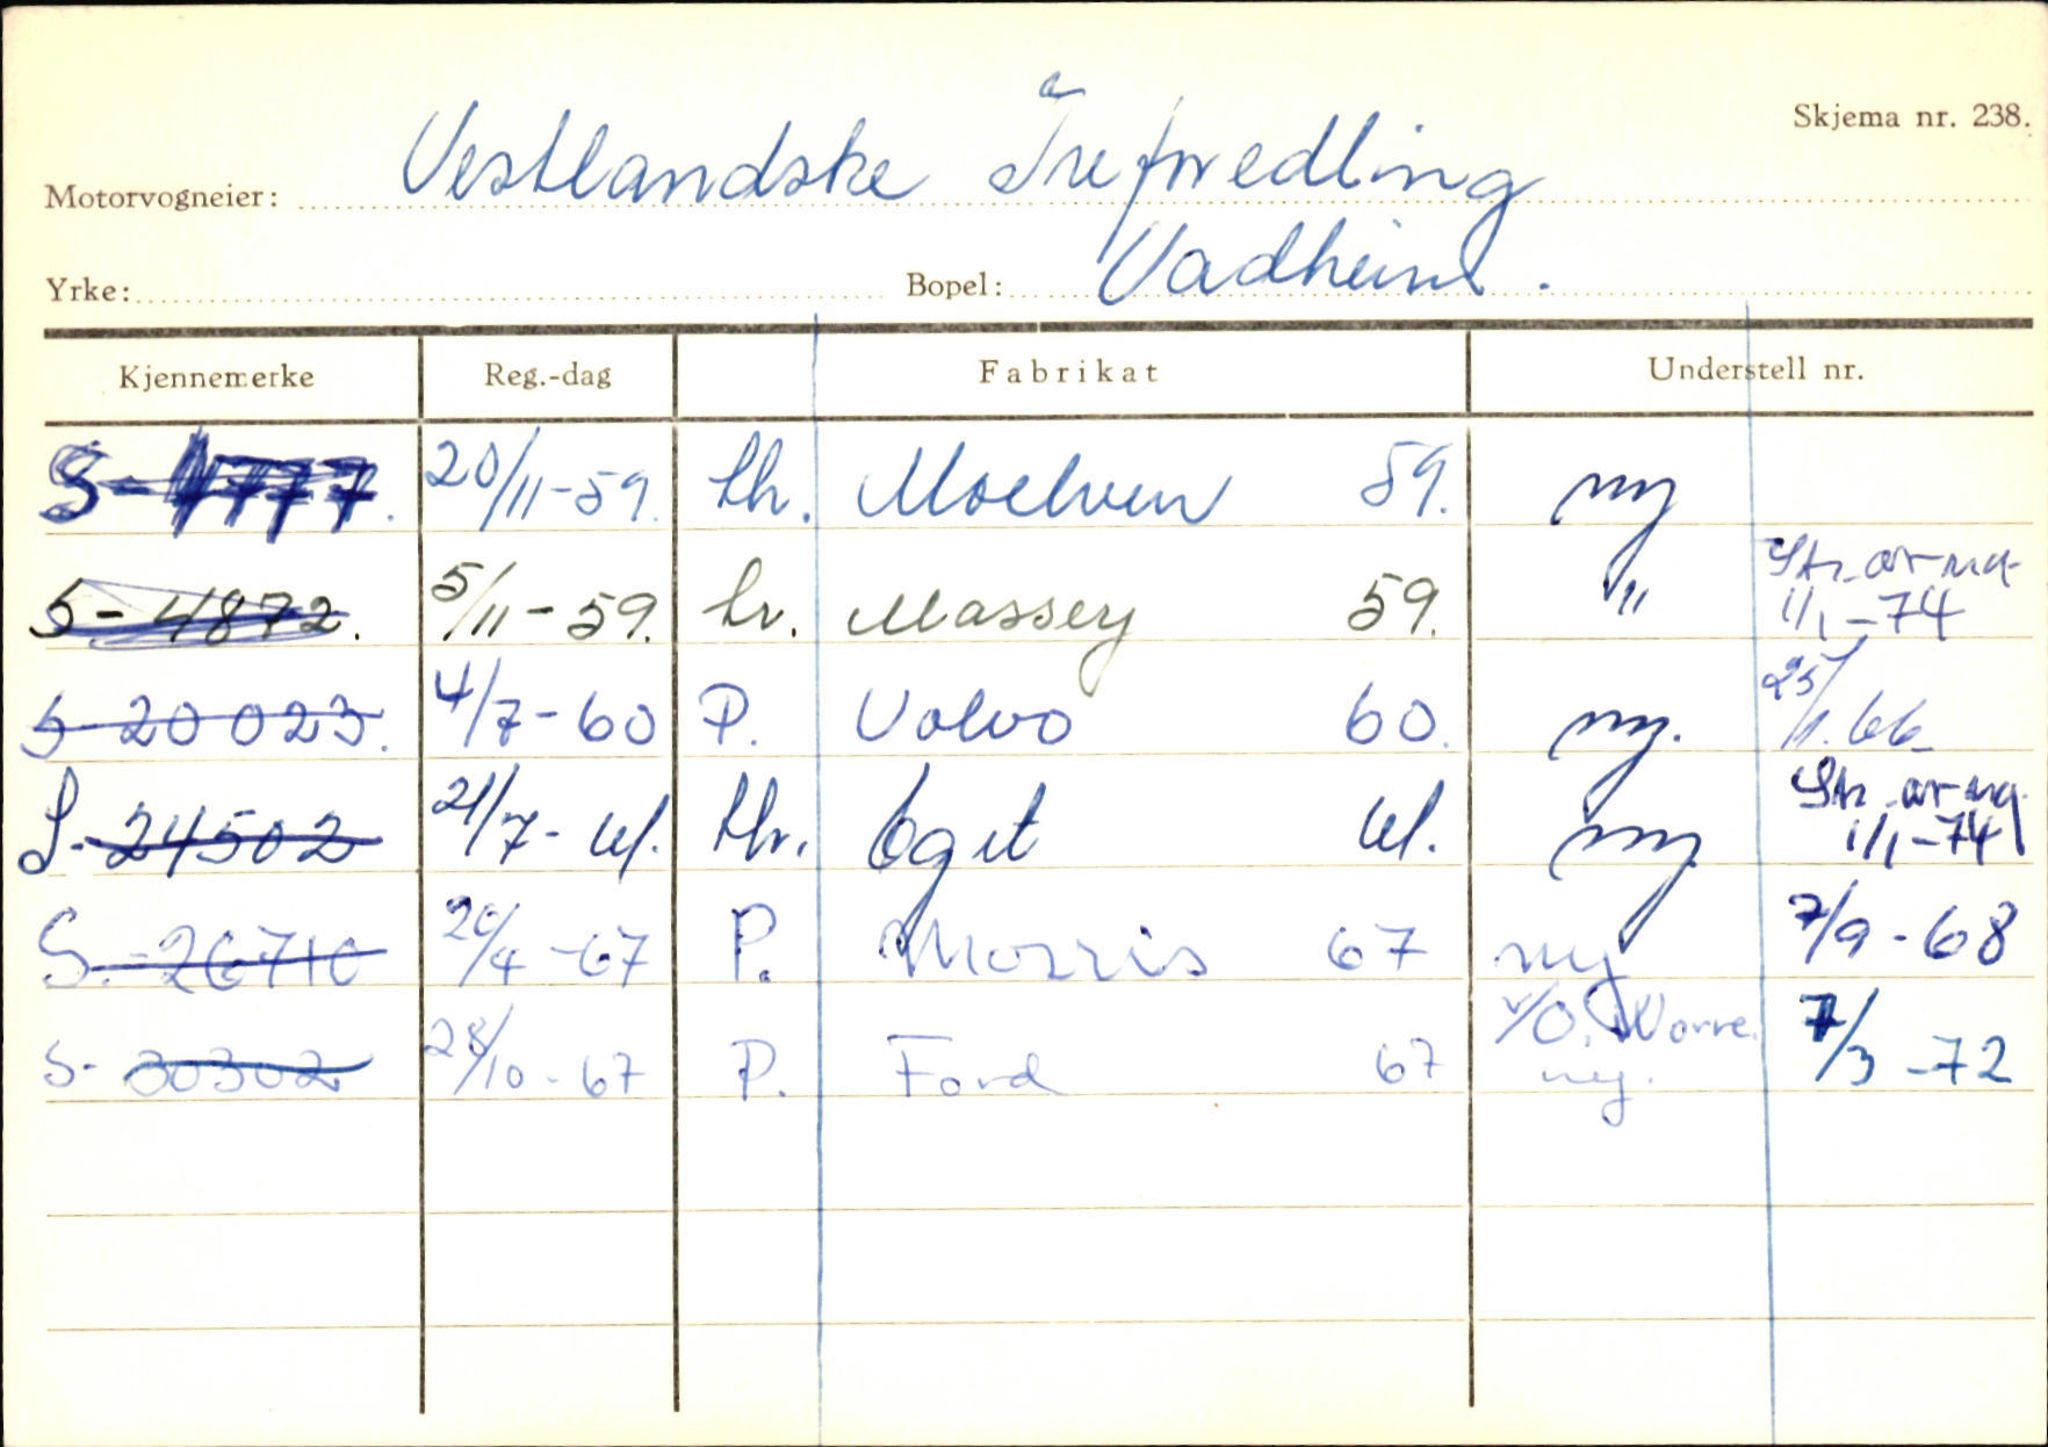 Skjema nr. 238.
Motorvogneier: Vestlandske Treforedling
Yrke: Bopel: Vadheim.
Kjennemerke Reg.-dag Fabrikat Understell nr.
S-4777. 20/11-59. th. Moelven 59. ny
S-4872. 5/11-59. tr. Massey 59. " Str. avreg. 1/1-74
S-20023. 4/7-60 P. Volvo 60. ny. 25/11.66
S-24502 21/7-61. thr. Eget 61. ny
1/1-74
S.-26710 20/4-67 P. Morris 67 ny 7/9-68
S-30302 28/10-67 P. Ford 67 ny. 7/3-72